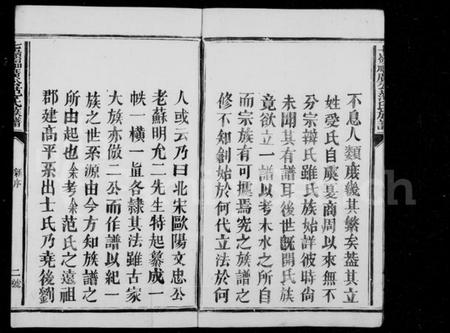 不息人類庶幾其繁矣蓋其立
姓受氏自虞夏商周以來無不
分宗辨氏雖氏族始詳彼時尚
未聞其有譜耳後世旣開氏族
竟欲立一譜以考木水之所自
而宗族有可攜焉究之族譜之
修不知創始於何代立法於何
人或云乃曰北宋歐陽文忠公
老蘇明允二先生特起纂成一
帙一橫一直各隸其法雖古家
大族亦倣二公而作譜以紀一
族之世系源由今方知族譜之
所由起也余考余范氏之遠祖
郡建高平系出士氏乃堯後劉
譜序
二號